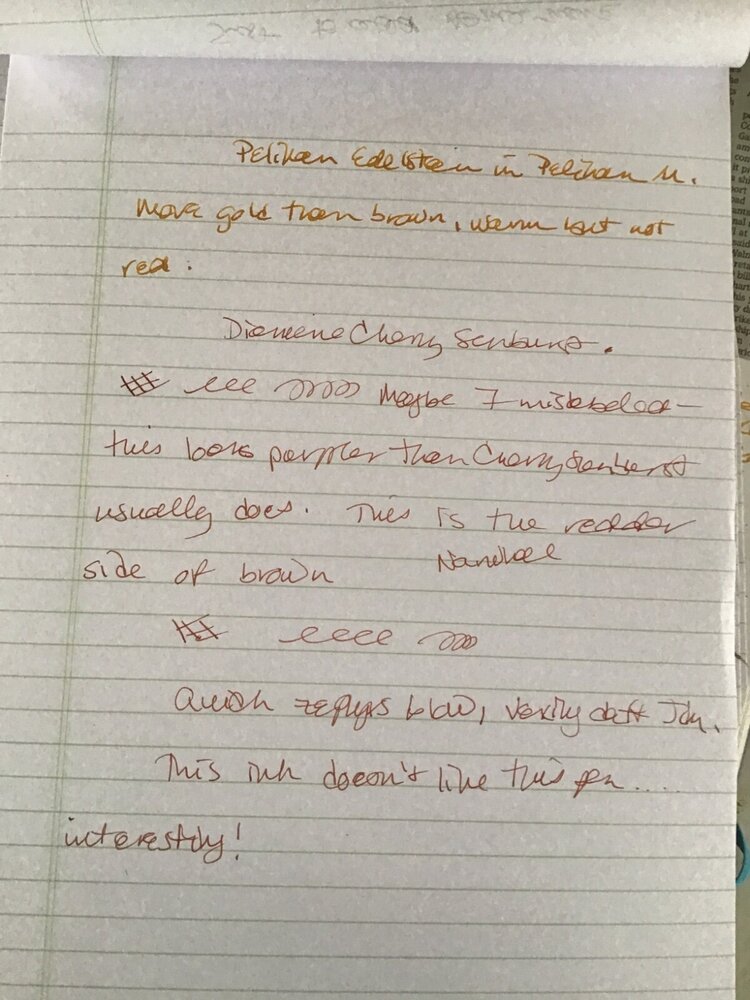 Pelikan Edelstein in Pelikan M.
More gold than brown, warm but not
red.
Diamine Cherry Sunburst.
Maybe I mislabeled—
this looks purpler than Cherry Sunburst
usually does. This is the redder
side of brown
Quick zephyrs blow, vexing daft Jim.
This ink doesn't like this pen....
interestingly!